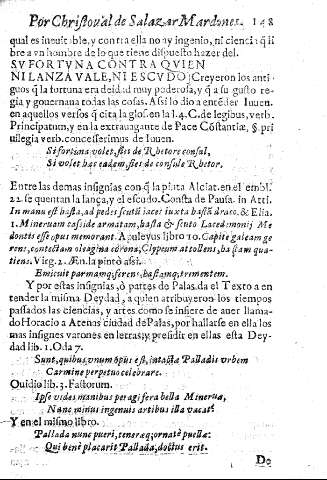 Por Christoual de Salazar Mardones. 148
qual es ineuitable, y contra ella no ay ingenio, ni ciencia q̃ li
bre a vn hombre de lo que tiene dispuesto hazer del.
SV FORTVNA CONTRA QVIEN
NI LANZA VALE, NI ESCVDO; Creyeron los anti-
guos q̃ la fortuna era deidad muy poderosa, y q̃ a su gusto regia
y gouernaua todas las cosas. Assi lo dio a entẽder Iuuen.
en aquellos versos q̃ cita la glos. en la l. 4. C. de legibus, verb.
Principatum, y en la extrauagante de Pace Cõstantiæ, §. pri
uilegia verb. concesserimus de Iuuen.
Si fortuna volet, fies de Rhetore consul,
Si volet hæc eadem, fies de consule Rhetor.
Entre las demas insignias con q̃ la pinta Alciat. en el embl.
22. se quentan la lança, y el escudo. Consta de Pausa. in Atti.
In manu est hasta, ad pedes scutũ iacet iuxta hastã draco. & Elia.
1. Mineruam casside armatam, hasta & scuto Lacedemonij Me
dontis esse opus memorant. Apuleyus libro 10. Capite galeam ge
rens, contectam oleagina corona, Clypeum attollens, hastam qua-
tiens. Virg. 2. Æn. la pintò assi.
Emicuit parmamq; ferens, hastamq; trementem.
Y por estas insignias, ò partes de Palas. da el Texto a en
tender la misma Deydad, a quien atribuyeron los tiempos
passados las ciencias, y artes como se infiere de auer llama-
do Horacio a Atenas ciudad de Palas, por hallarse en ella los
mas insignes varones en letras, y presidir en ellas esta Dey-
dad lib. 1. Oda 7.
Sunt, quibus vnum opus est, intactæ Palladis vrbem
Carmine perpetuo celebrare.
Ouidio lib. 3. Fastorum.
Ipse vides manibus peragi fera bella Mineruæ,
Nunc minus ingenuis artibus illa vacat?
Y en el mismo libro.
Pallada nunc pueri, teneræq; ornate puellæ:
Qui bene placarit Pallada, doctus erit.
De